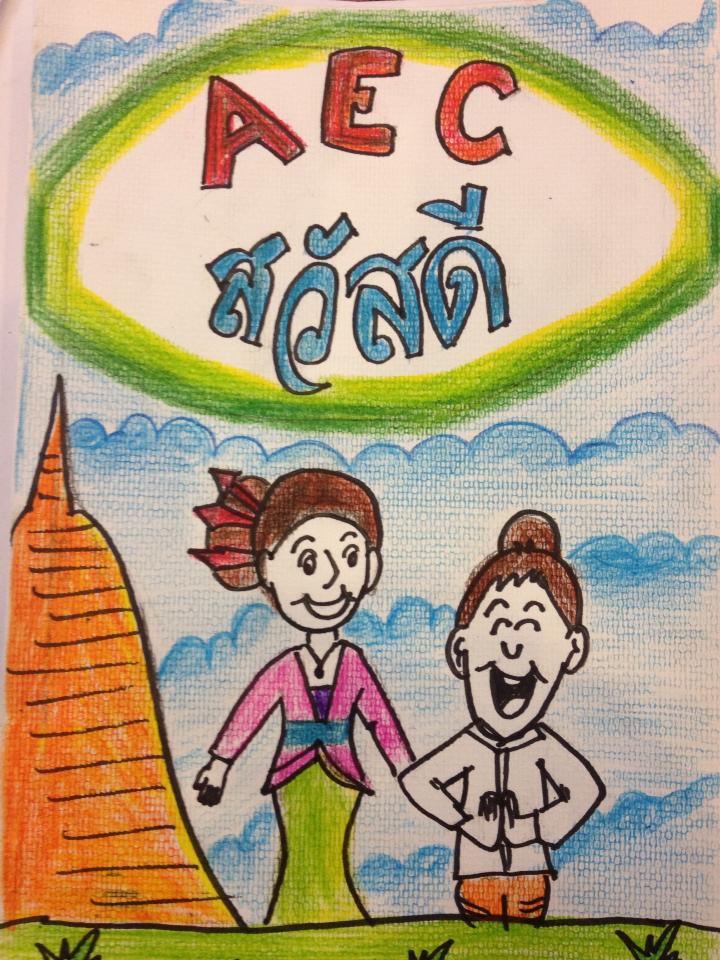 AEC
สวัสดี